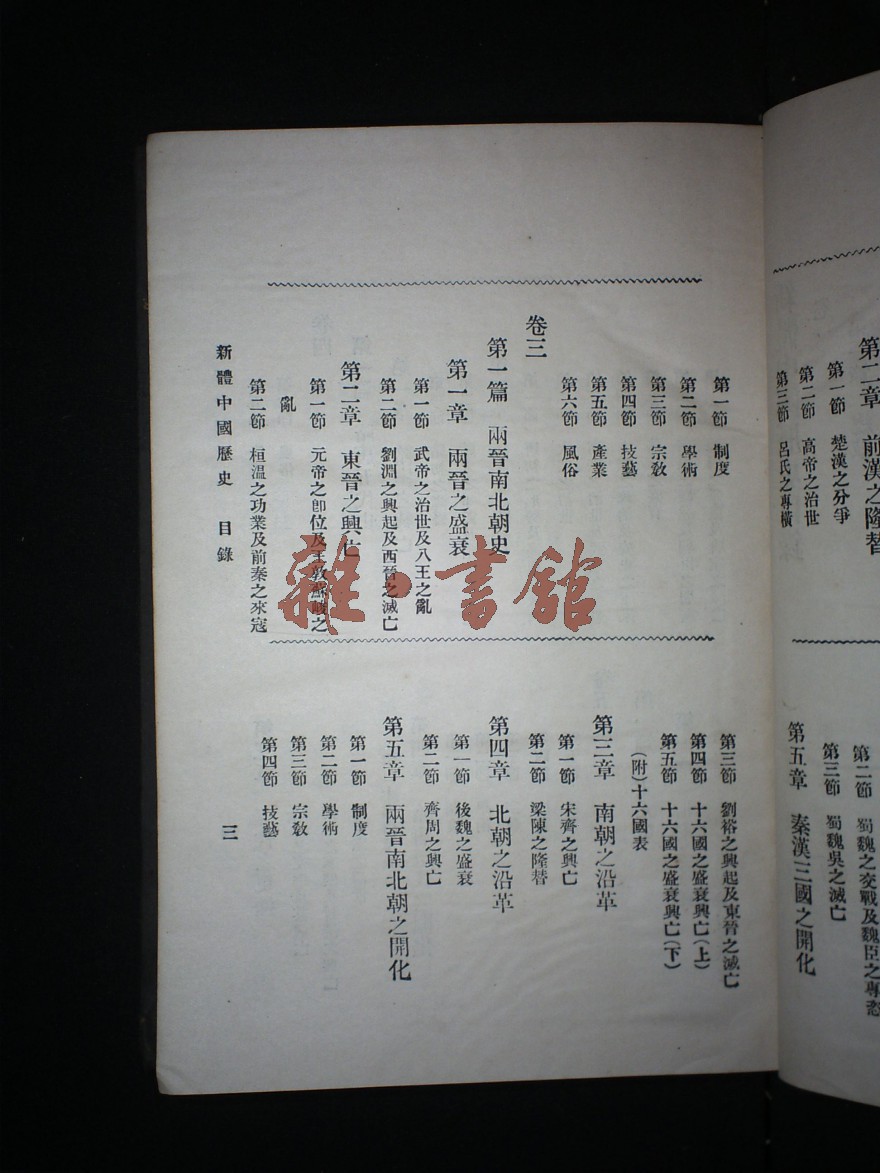 第二章　前漢之隆替
第一節　楚漢之分爭
第二節　高帝之治世
第三節　呂氏之專橫
第二節　蜀魏之交戰及魏臣之專恣
第三節　蜀魏吳之滅亡
第五章　秦漢三國之開化
第一節　制度
第二節　學術
第三節　宗敎
第四節　技藝
第五節　產業
第六節　風俗
卷三
第一篇　兩晉南北朝史
第一章　兩晉之盛衰
第一節　武帝之治世及八王之亂
第二節　劉淵之興起及西晉之滅亡
第二章　東晉之興亡
第一節　元帝之卽位及王敦蘇峻之
亂
第二節　桓溫之功業及前秦之來寇
第三節　劉裕之興起及東晉之滅亡
第四節　十六國之盛衰興亡(上)
第五節　十六國之盛衰興亡(下)
(附)十六國表
第三章　南朝之沿革
第一節　宋齊之興亡
第二節　梁陳之隆替
第四章　北朝之沿革
第一節　後魏之盛衰
第二節　齊周之興亡
第五章　兩晉南北朝之開化
第一節　制度
第二節　學術
第三節　宗敎
第四節　技藝
新體中國歷史　目錄
三
雜·書館